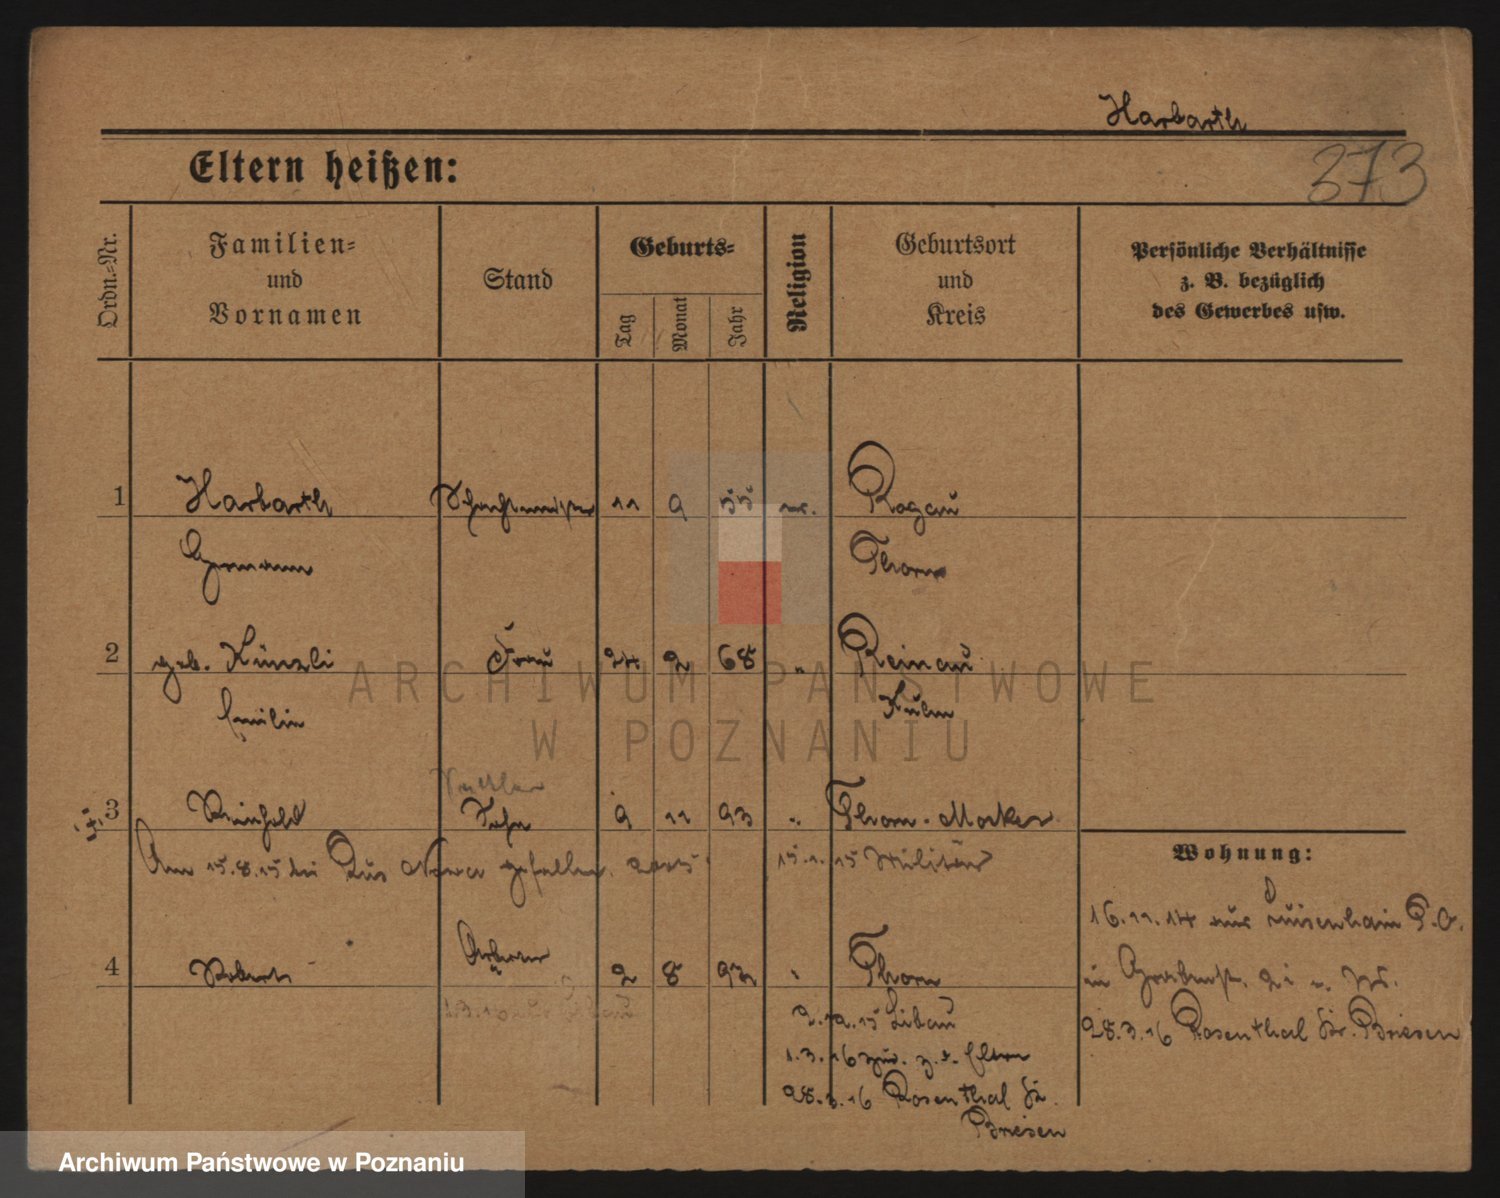 Harbarth
373
Eltern heißen:
Ordn.-Nr.
Familien-
und
Vornamen
Stand
Geburts-
Tag
Monat
Jahr
Religion
Geburtsort
und
Kreis
Persönliche Verhältnisse
z. B. bezüglich
des Gewerbes usw.
1 Harbarth Schachtmeister 11 9 55 Rogau
Hermann Thorn
2 geb. Künzli Frau 24 2 68 " Reinau
Emilie Kulm
3 Reinhold Sohn 9 11 93 " Thorn-Mocker
Am 15.8.15 bei gefallen. 15.1.15 Militär
Wohnung:
16.11.14 aus Luisenhain P.O.
4 Robert Arbeiter 2 8 92 " Thorn
in
2.12.15 Libau
28.3.16 Rosenthal Kr. Briesen
1.3.16 zur. z. d. Eltern
28.3.16 Rosenthal Kr.
Briesen
ARCHIWUM PAŃSTWOWE
W POZNANIU
Archiwum Państwowe w Poznaniu